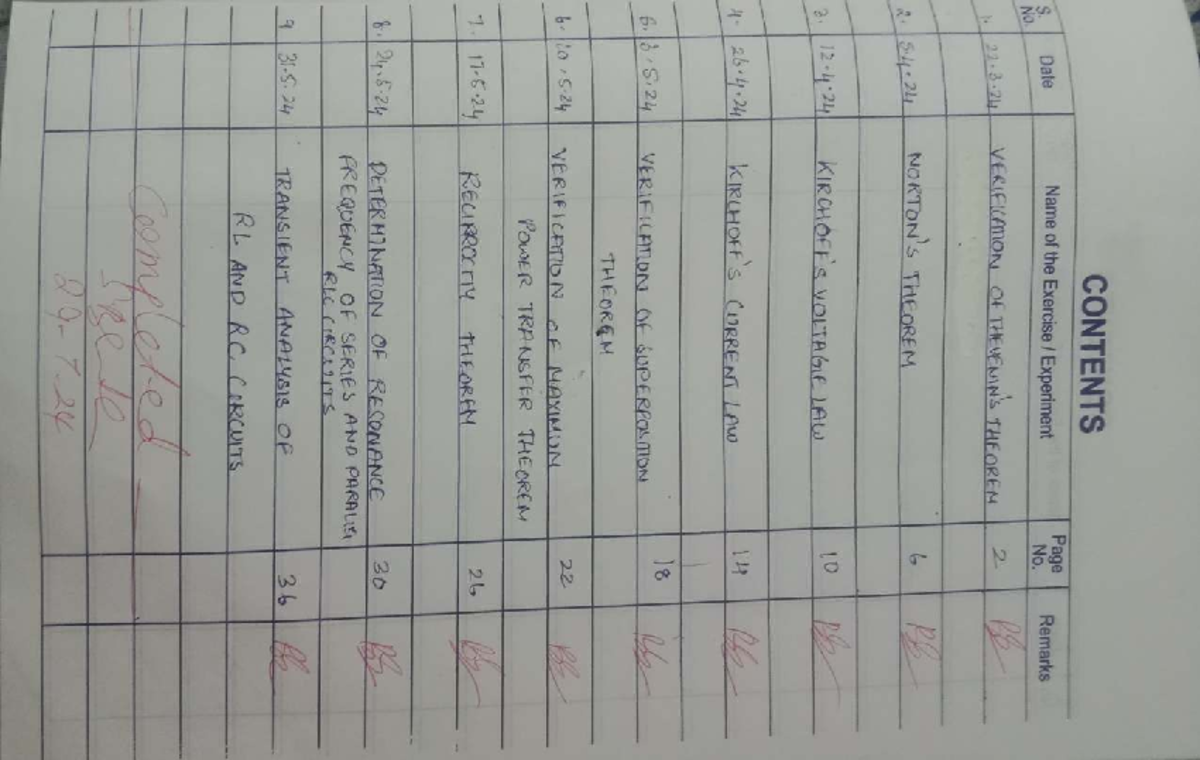 CONTENTS
S. No. Date Name of the Exercise / Experiment Page No. Remarks
1. 22.3.24 VERIFICATION OF THEVENIN'S THEOREM 2
2. 5.4.24 NORTON'S THEOREM 6
3. 12.4.24 KIRCHOFF'S VOLTAGE LAW 10
4. 26.4.24 KIRCHOFF'S CURRENT LAW 14
5. 3.5.24 VERIFICATION OF SUPERPOSITION 18
THEOREM
6. 10.5.24 VERIFICATION OF MAXIMUM 22
POWER TRANSFER THEOREM
7. 17.5.24 RECIPROCITY THEOREM 26
8. 24.5.24 DETERMINATION OF RESONANCE 30
FREQUENCY OF SERIES AND PARALLEL
RLC CIRCUITS
9 31.5.24 TRANSIENT ANALYSIS OF 36
RL AND RC CIRCUITS
Completed
29.7.24